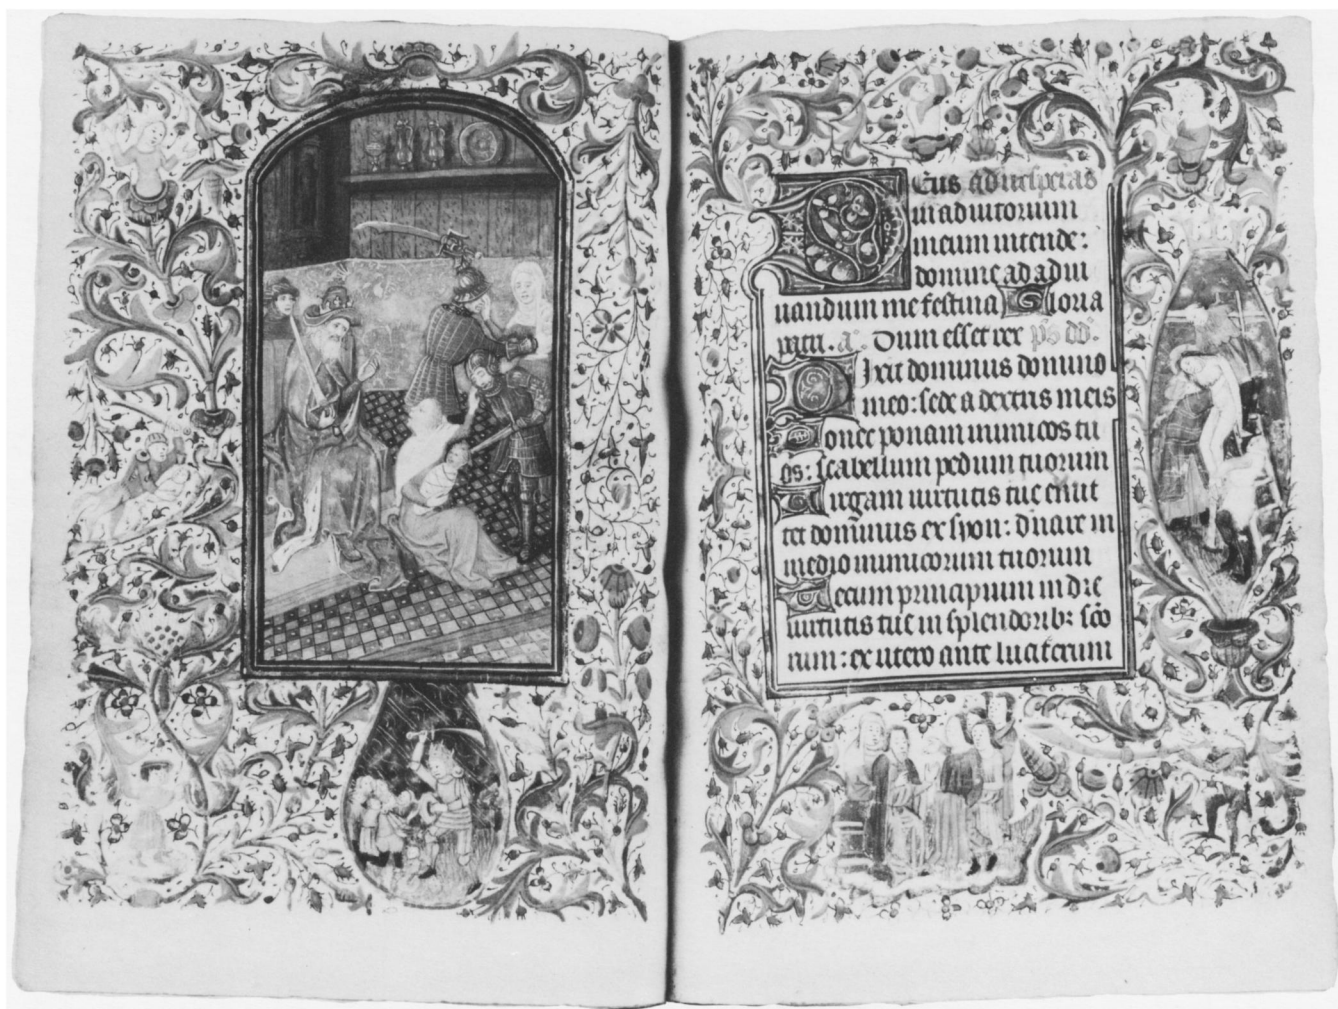 Eus ad vesperas
in adiutorium
meum intende:
domine ad adiu
uandum me festina Gloria
patri. a. Dum esset rex ps dd.
Dixit dominus domino
meo: sede a dextris meis
Donec ponam inimicos tu
os: scabellum pedum tuorum
Uirgam uirtutis tue emit
tet dominus ex syon: dnare in
medio inimicorum tuorum
Tecum principium in die
uirtutis tue in splendoribz sco
rum: ex utero ante luciferum